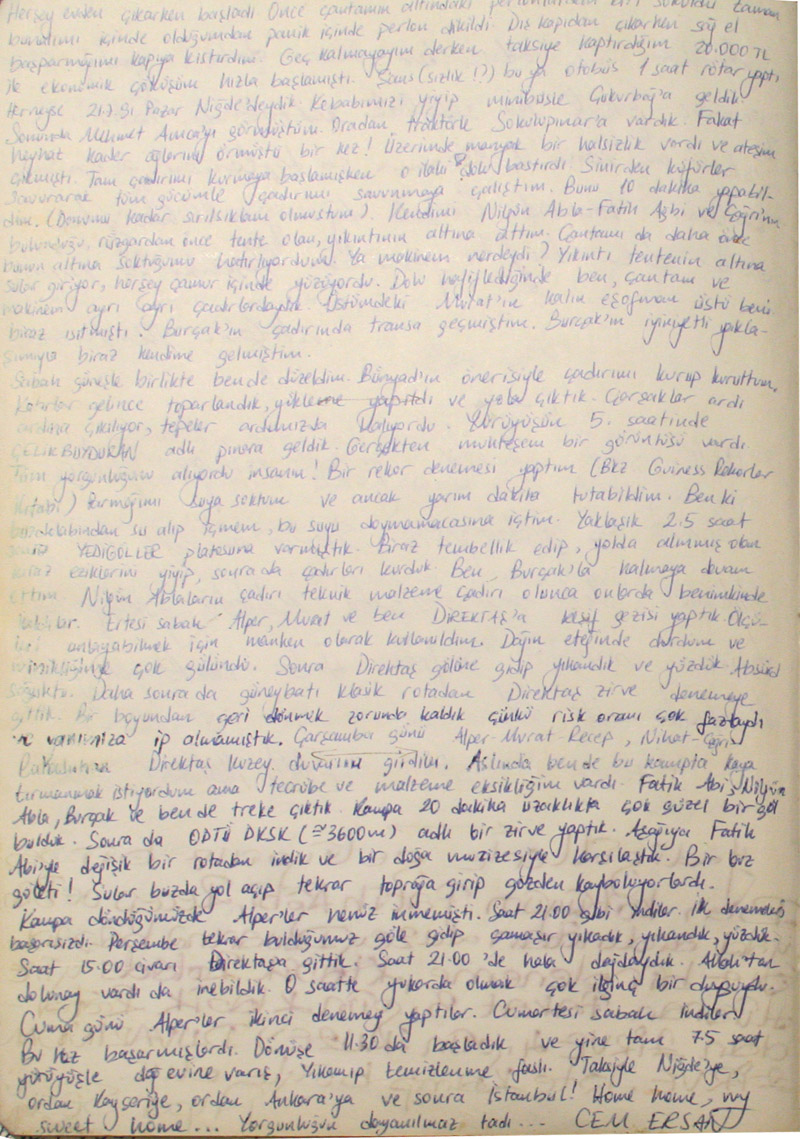 Herşey evden çıkarken başladı. Önce çantamın altındaki perlonlardan biri söküldü. Zaman
bunalımı içinde olduğumdan panik içinde perlon dikildi. Dış kapıdan çıkarken sağ el
başparmağımı kapıya kıstırdım. Geç kalmayayım derken taksiye kaptırdığım 20.000 TL
ile ekonomik çöküşüm hızla başlamıştı. Şans(sızlık!?) bu ya otobüs 1 saat rötar yaptı
Herneyse 21.7.91 Pazar Niğde'deydik. Kebabımızı yiyip minibüsle Çukurbağ'a geldik
Sonunda Mehmet Amca'yı görmüştüm. Oradan traktörle Sokulupınar'a vardık. Fakat
heyhat kader ağlarını örmüştü bir kez! Üzerimde manyak bir halsizlik vardı ve ateşim
çıkmıştı. Tam çadırımı kurmaya başlamışken o ilahi dolu bastırdı. Sinirden küfürler
savurarak tüm gücümle çadırımı savunmaya çalıştım. Bunu 10 dakika yapabil-
dim. (Donuma kadar sırılsıklam olmuştum). Kendimi Nilgün Abla-Fatih Ağbi ve Çağrı'nın
bulunduğu, rüzgardan önce tente olan, yıkıntının altına attım. Çantamı da daha önce
bunun altına soktuğumu hatırlıyordum. Ya makinem nerdeydi? Yıkıntı tentenin altına
sular giriyor, herşey çamur içinde yüzüyordu. Dolu hafiflediğinde ben, çantam ve
makinem ayrı ayrı çadırlardaydık. Üstümdeki Murat'ın kalın eşofman üstü beni
biraz ısıtmıştı. Burçak'ın çadırında transa geçmiştim. Burçak'ın iyiniyetli yakla-
şımıyla biraz kendime gelmiştim.
Sabah güneşle birlikte bende düzeldim. Bünyad'ın önerisiyle çadırımı kurup kuruttum.
Katırlar gelince toparlandık, yükleme yapıldı ve yola çıktık. Çarşaklar ardı
ardına çıkılıyor, tepeler ardımızda kalıyordu. Yürüyüşün 5. saatinde
ÇELİKBUYDURAN adlı pınara geldik. Gerçekten muhteşem bir görüntüsü vardı.
Tüm yorgunluğunu alıyordu insanın! Bir rekor denemesi yaptım (Bkz Guiness Rekorlar
Kitabı) Parmağımı suya soktum ve ancak yarım dakika tutabildim. Ben ki
buzdolabından su alıp içmem, bu suyu doymamacasına içtim. Yaklaşık 2.5 saat
sonra YEDİGÖLLER platosuna varmıştık. Biraz tembellik edip, yolda alınmış olan
kiraz eziklerini yiyip, sonra da çadırları kurduk. Ben, Burçak'la kalmaya devam
ettim. Nilgün Ablaların çadırı teknik malzeme çadırı olunca onlarda benimkinde
kaldılar. Ertesi sabah Alper, Murat ve ben DİREKTAŞ'a keşif gezisi yaptık. Ölçü-
leri anlayabilmek için manken olarak kullanıldım. Dağın eteğinde durdum ve
minikliğime çok gülündü. Sonra Direktaş gölüne gidip yıkandık ve yüzdük. Absürd
soğuktu. Daha sonra da güneybatı klasik rotadan Direktaş zirve denemeye
gittik. Bir boyundan geri dönmek zorunda kaldık çünkü risk oranı çok fazlaydı
ve yanımıza ip almamıştık. Çarşamba günü Alper-Murat-Recep, Nihat-Çağrı
Direktaş kuzey duvarına girdiler. Aslında bende bu kampta kaya
tırmanmak istiyordum ama tecrübe ve malzeme eksikliğim vardı. Fatih Abi, Nilgün
Abla, Burçak ve bende treke çıktık. Kampa 20 dakika uzaklıkta çok güzel bir göl
bulduk. Sonra da ODTÜ DKSK (≅3600m) adlı bir zirve yaptık. Aşağıya Fatih
Abi'yle değişik bir rotadan indik ve bir doğa mucizesiyle karşılaştık. Bir buz
göleti! Sular buzda yol açıp tekrar toprağa girip gözden kayboluyorlardı.
Kampa döndüğümüzde Alper'ler henüz inmemişti. Saat 21.00 gibi indiler. İlk denemeleri
başarısızdı. Perşembe tekrar bulduğumuz göle gidip çamaşır yıkadık, yıkandık, yüzdük.
Saat 15.00 civarı Direktaşa gittik. Saat 21.00'de hala dağdaydık. Allah'tan
dolunay vardı da inebildik. O saatte yukarda olmak çok ilginç bir duyguydu.
Cuma günü Alper'ler ikinci denemeyi yaptılar. Cumartesi sabah indiler
Bu kez başarmışlardı. Dönüşe 11.30 da başladık ve yine tam 7.5 saat
yürüyüşle dağ evine varış, yıkanıp temizlenme faslı. Taksiyle Niğde'ye,
ordan Kayseriye, ordan Ankara'ya ve sonra İstanbul! Home home, my
sweet home... Yorgunluğun dayanılmaz tadı... CEM ERSAN